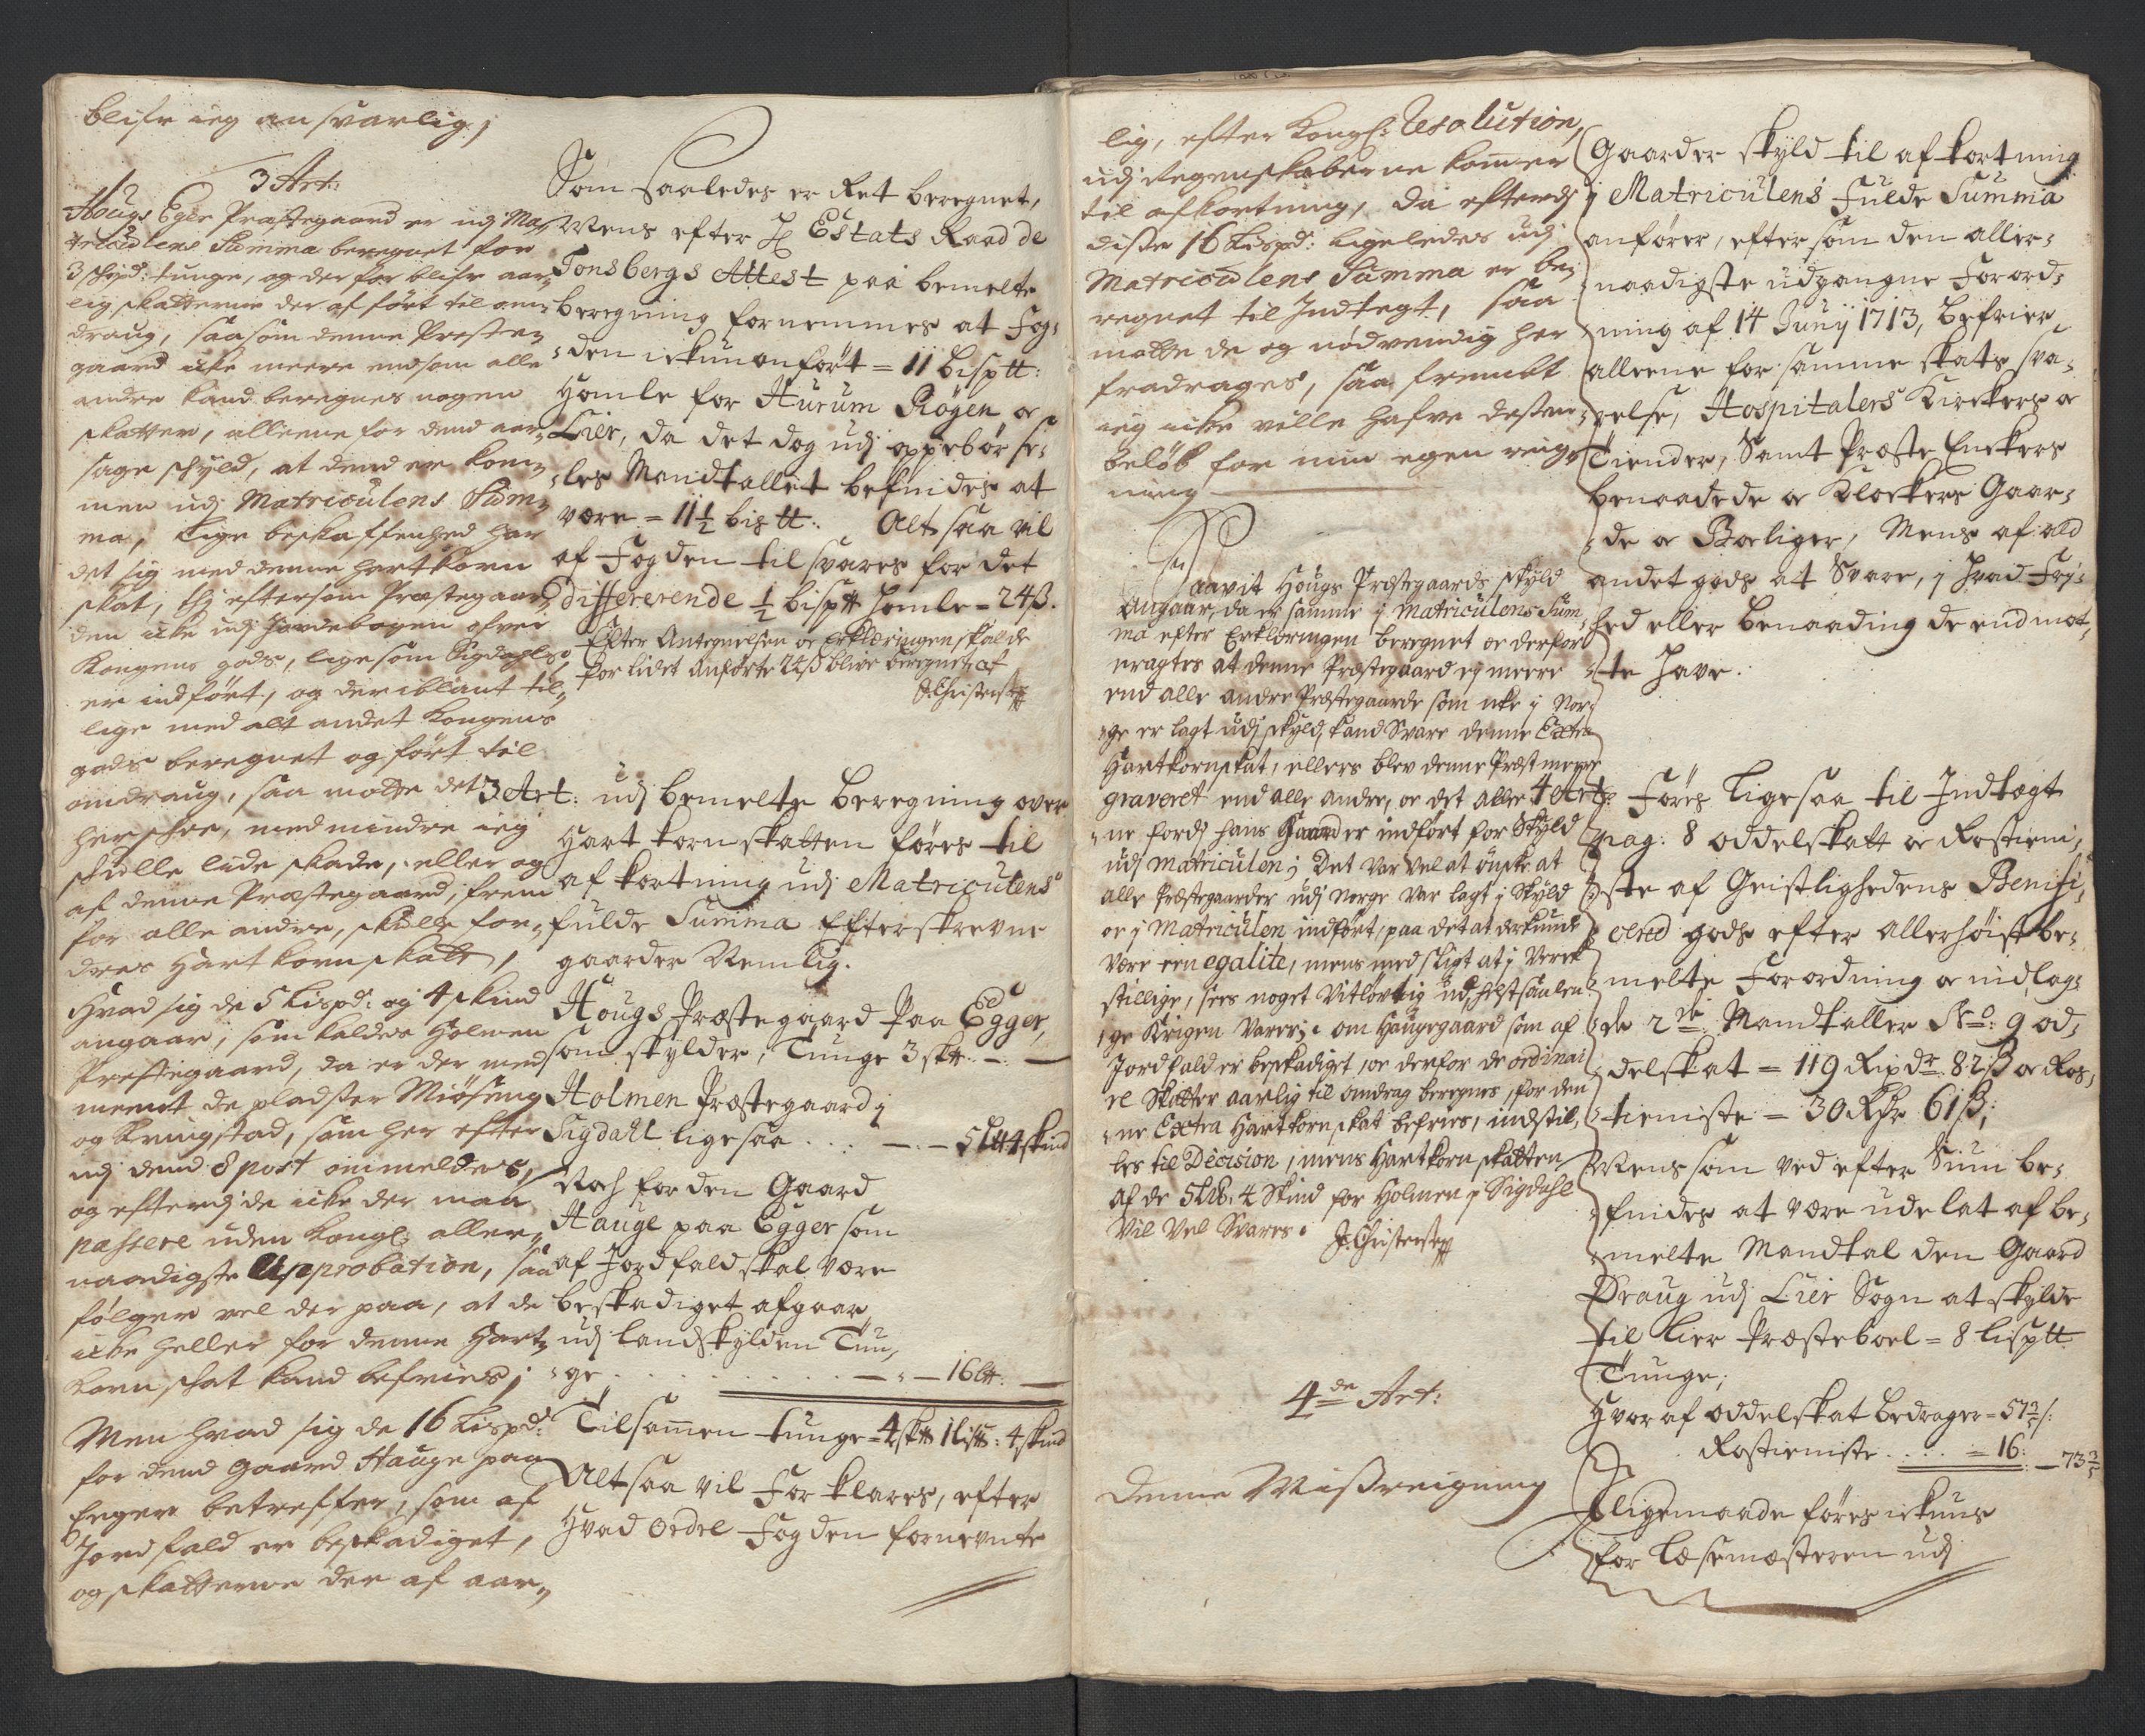 blifr ieg ansvarlig;
3 Art:
Hougs Eger Præstegaard er udj Ma-
triculens Summa beregnet for
3 schpd: tunge, og der for blifr aar-
lig skatterne der af ført til om-
draug, saasom denne Preste-
gaard icke meere endsom alle
andre kand beregnes nogen
skatter, alleene for dend aar-
sage skyld, at dend er kom-
men udj Matriculens Sum-
ma, Lige beskaffenhed har
det sig med denne hartkorn
skat, thj eftersom Præstegaar-
den icke udj Jordebogen ofver
Kongens gods, ligesom Sigdahls
er indført, og der iblant til-
lige med alt andet Kongens
gods beregnet og ført til
omdraug, saa motte det
her skee, med mindre ieg
skulle lide skade, eller og
af denne Præstegaard, frem
for alle andre, skulle for-
dres Hart korn skatt,
Hvad sig de 5 Lispd: og 4 skind
angaar, som kaldes Holmen
Prestegaard, da er der med
meent de pladster Miøseng
og Kringstad, som her efter
udj dend 8 post ommelders,
og efterdj de icke der maa
passere uden Kongl: aller-
naadigste Approbation, saa
følger vel der paa, at de
icke heller for denne Hart-
korn skat kand befries;
Men hvad sig de 16 Lispd:
for dend Gaard Hauge paa
Eger betreffer, som af
Jordfald er beskadiget,
og skatterne der af aar-
Som saaledes er Ret beregnet,
Mens efter H Estats Raad de
Tonsbergs Attest paa bemelte
beregning fornemmes at Fog-
den ickun anført = 11 bisptt:
Homle for Hurum Røgen oc
Lier, da det dog udj oppebørse-
les Mandtallet befindes at
være = 11½ bistt: Altsaa vil
af Fogden til svares for det
differerende ½ bisptt Homle = 24ß.
Efter Antegnelsen oc Erklæringen skal de
for lidet Anførte 24ß blive beregnet af
3 Art: udj bemelte beregning over
Hart korn skatten føres til
af kortning udj Matriculens
fulde Summa Efterskrevne
gaarder Nemlig.
Hougs Præstegaard Paa Egger,
som skylder, Tunge 3 sktt. — . —
Holmen Præstegaard j
Sigdahl ligesaa . . . — . — 5 ltt 4 skind
Noch for den Gaard
Hauge paa Egger som
af Jordfald skal være
beskadiget afgaar
udj landskylden Tun-
ge . . . — . — 16 ltt: —
Tilsamen tunge = 4 sktt 1 listt: 4 skind
Altsaa vil For klares, efter
Hvad ordre Fogden fornevnte
lig, efter Kongl: Resolution,
udj Regenskaberne kommer
til afkortning, da efterdj
disse 16 Lispd: ligeledes udj
Matriculens Summa er be-
regnet til Indtegt, saa
motte de og nødvendig her
fradrages, saa fremt
ieg icke ville hafve desten
beløb for min egen reig-
ning
Saavit Hougs Præstegaards skyld
Angaar, da er samme j Matriculens Sum-
ma efter Erklæringen beregnet oc derfore
eragtes at denne Præstegaard ej meere
end alle andre Præstegaarde som icke j Nor-
ge er lagt udj skyld, kand Svare denne Extra
Hartkornskat, ellers blev denne Præst meere
graveret end alle andre, oc det alle-
ne fordj hans Gaard er indført for Skyld
udj Matriculen; Det var vel at ønske at
alle Præstegaarder udj Norge var lagt j Skyld
oc j Matriculen indført, paa det at der kunde
være een egalite, mens med sligt at j Verck
stillige, sees noget Vitløvtig udj, helst saalen-
ge Krigen varer; om Haugegaard som af
Jordfald er beskadiget, oc derfor de ordinai
re Skatter aarlig til omdrag beregnes, for den
ne Extra Hartkornskat befries, indstil-
les til Decision, mens Hartkorn skatten
af de 5 Lt: 4 Skind for Holmen j Sigdahl
Vil Vel Svares.
4de Art:
Denne Misreigning
Gaarder skyld til af kortning
j Matriculens Fulde Summa
anfører, efter som den aller-
naadigste udgangne Forord-
ning af 14 Junij 1713, befrier
alleene for samme skats sva-
relse, Hospitalers Kirckers oc
Tiender, Samt Præste Enckers
benaadede oc Klockers Gaar-
de oc Boeliger, Mens af ald
andet gods at Svare, j Hvad Frj-
hed eller benaading de end mot-
te have.
4 Art: Føres Ligesaa til Indtægt
pag: 8 oddelskatt oc Rostieni-
ste af Geistlighedens Benifi-
cered gods efter Allerhøistbe-
melte Forordning oc indlag-
de 2de: Mandtaller No: 9 od-
delskat = 119 Rixdr. 82ß oc Ros-
tieniste = 30 Rdr 61ß;
Mens som ved efter Sum be-
findes at være udelat af be-
melte Mandtal den Gaard
Draug udj Lier Sogn at skylde
til Lier Præsteboel = 8 lisptt
Tunge;
Hvor af oddelskat bedrager = 57⅗ s:
Rostieniste . . . . = 16: — 73⅗
Jligemaade føres ickuns
for Læsemæsteren udj